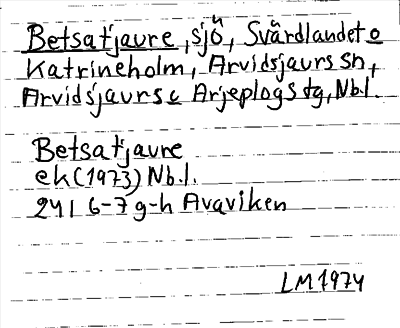 Betsatjaure, sjö, Svärdlandet o
Katrineholm, Arvidsjaurs sn,
Arvidsjaurs o Arjeplogs tg, Nb.l.
Betsatjaure
ek (1973) Nb.l.
24 I 6-7 g-h Avaviken
LM 1974